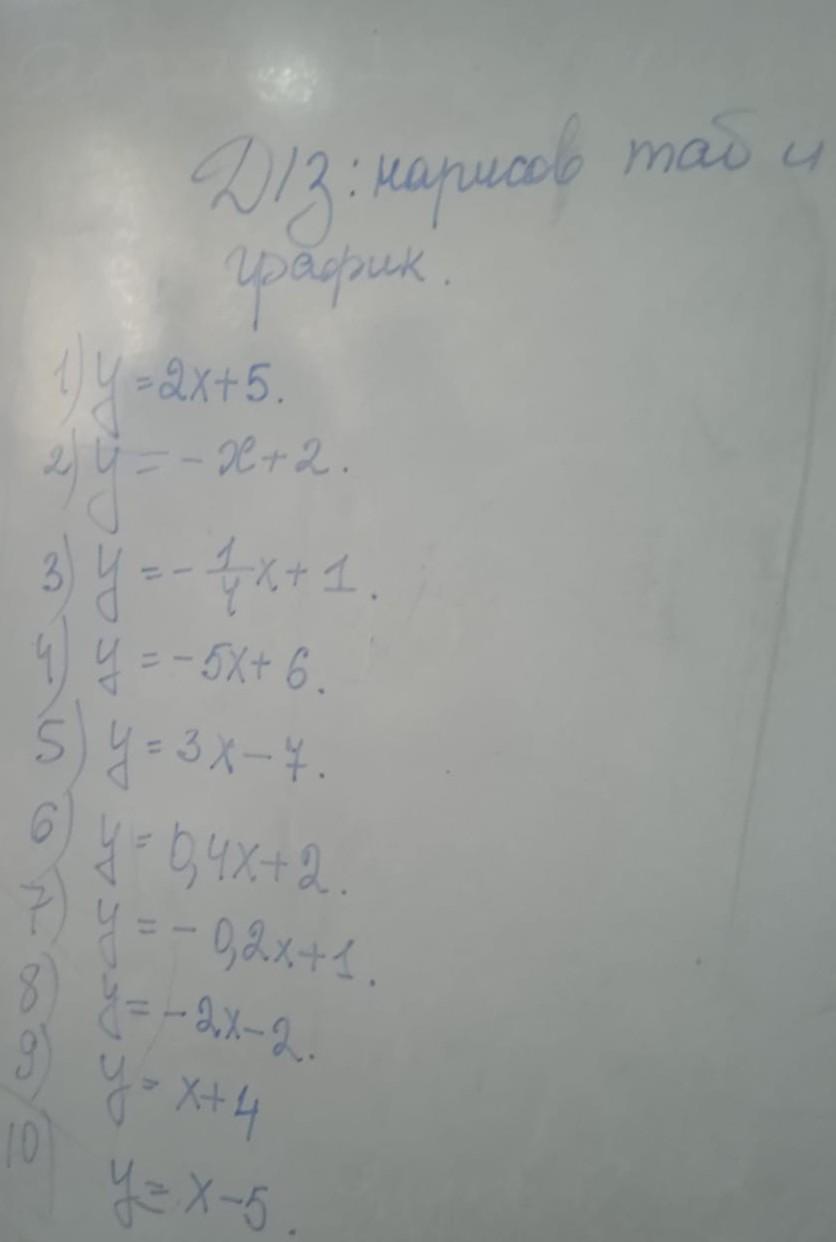 Д/з: нарисов таб и
график.
1) y = 2x + 5.
2) y = - x + 2.
3) y = - 1/4 x + 1.
4) y = - 5x + 6.
5) y = 3x - 7.
6) y = 0,4x + 2.
7) y = - 0,2x + 1.
8) y = - 2x - 2.
9) y = x + 4
10) y = x - 5.